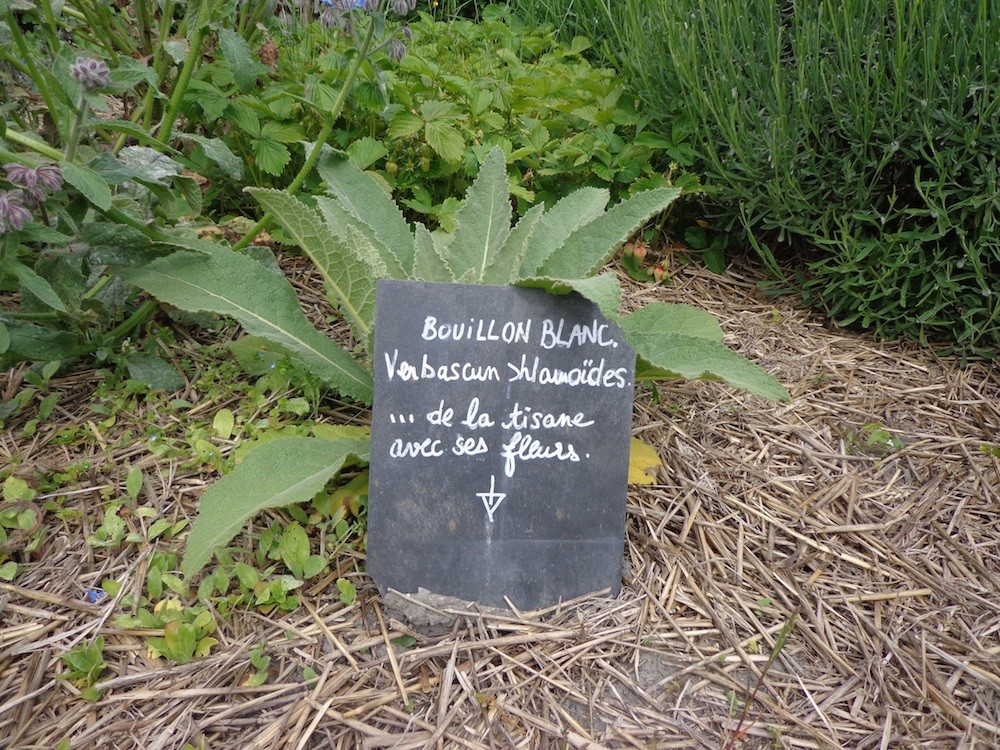 BOUILLON BLANC.
Verbascun >hlamoïdes.
... de la tisane
avec ses fleurs.